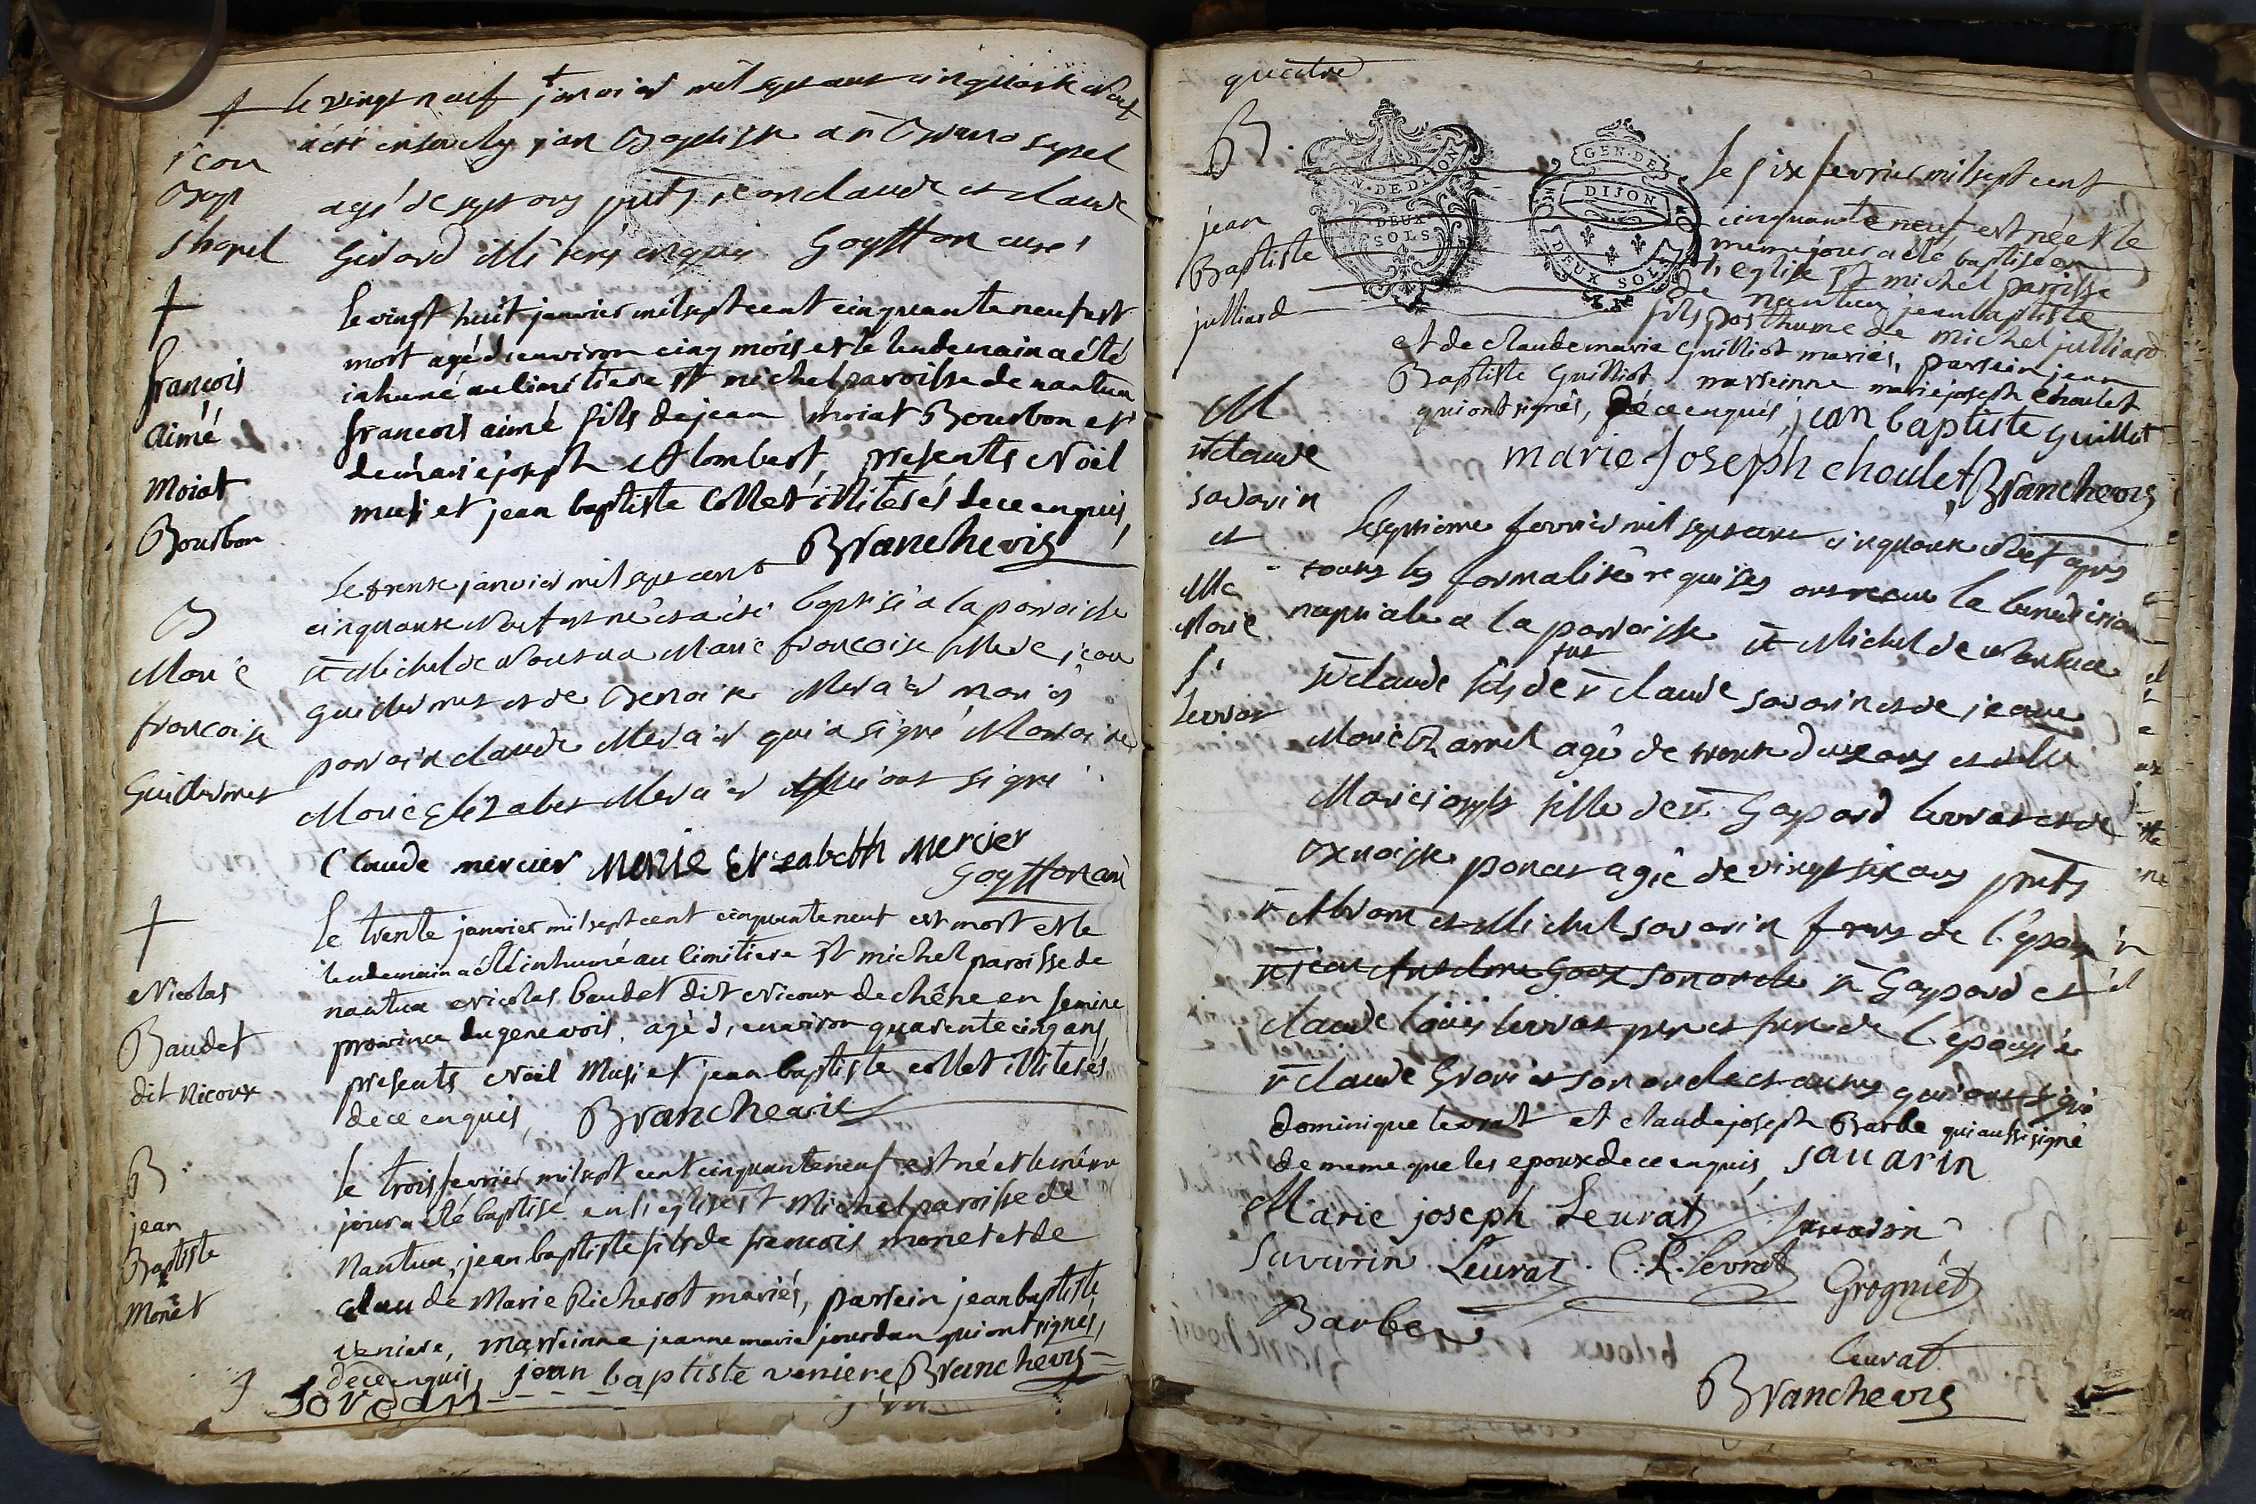 + le vingt neuf janvier mil sept cent cinquante neuf
a été ensevely jean Baptiste
agé de sept ans jean claude et claude
Girard illiterés enquis Goytton curé
jean
Bapt
+
françois
aimé
moiat
Bourbon
le vingt huit janvier mil sept cent cinquante neuf est
mort agé d'environ cinq mois et le lendemain a été
inhumé au cimitiere St michel paroisse de nantua
françois aimé fils de jean moiat Bourbon et
de marie joseph lombert, presents Noël
musi et jean baptiste Collet illiterés de ce enquis,
Brancheoris
B
Marie
francoise
Guillermet
Le trente janvier mil sept cent
cinquante neuf est né et a été baptisé a la paroisse
St Michel de Nantua Marie francoise fille de jean
Guillermet et de Benoite Mercier mariés
parrain claude Mercier qui a signé Marraine
Marie Elizabet Mercier qui ont signé
Claude mercier Marie Elizabeth Mercier
Goytton curé
+
Nicolas
Baudet
dit Nicoux
Le trente janvier mil sept cent cinquante neuf est mort et le
lendemain a été inhumé au cimitiere St michel paroisse de
nantua Nicolas baudet dit Nicoux de chêne en semine
province du genevois, agé d'environ quarente cinq ans
presents Noël Musi et jean baptiste collet illiterés
de ce enquis, Brancheoris
B
jean
Baptiste
Monêt
le trois fevrier mil sept cent cinquante neuf est né et le même
jour a été baptisé en l'eglise St Michel paroisse de
Nantua, jean baptiste fils de francois monet et de
claude Marie Richerot mariés, parrein jean baptiste
veniere, marreinne jeanne marie jourdan qui ont signés,
de ce enquis, jean baptiste veniere Brancheoris
Jordan
quatre
GEN. DE DIJON
DEUX
SOLS
GEN. DE
DIJON
DEUX SOLS
B
jean
Baptiste
julliard
Le six fevrier mil sept cent
cinquante neuf est né et le
meme jour a été baptisé en
l'eglise St michel parroisse
de nantua jean baptiste
fils posthume de michel julliard
et de claude marie Guilliot mariés, parrein jean
Baptiste Guilliot marreinne marie joseph choulet
qui ont signés, de ce enquis, jean baptiste Guilliot
marie Joseph choulet Brancheoris
M
Sr claude
savarin
et
Mlle
Marie
j
Levrat
Le septieme fevrier mil sept cent cinquante neuf apres
toutes les formalités requises ont recue la benediction
nuptiale a la paroisse St Michel de Nantua
Sr claude fils de feu Sr claude savarin et de jeanne
Marie agé de trente deux ans et dlle
Marie joseph fille de Sr Gaspard levrat et de
Benoiste poncet agée de vingt six ans pnts
Sr et Michel savarin freres de l'epoux
Sr jean Anselme Goux son oncle Sr Gaspard et
claude loüis levrat pere et frere de l'epouse
Sr claude son oncle et autres qui ont signé
dominique levrat et claude joseph Barbe qui aussi signé
de meme que les epoux de ce enquis, savarin
Marie joseph Levrat savarin
Savarin Levrat C. L. levrat
Grogniet
Barbe
Levrat
Brancheoris